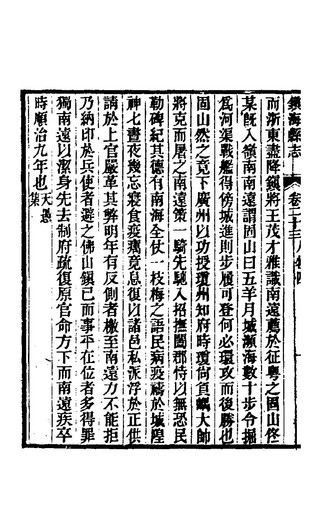 鎮海縣志 卷二十三 人物四
而浙東盡降鎮將王茂才雅識南遠薦於征粵之固山佟
某旣入嶺南南遠謂固山曰五羊月城瀕海數十步令掘
爲河渠戰艦得傍城進則步履可登何必環攻而後勝也
固山然之竟下廣州以功授瓊州知府時瓊尙負嵎大師
將克而屠之南遠策一騎先馳入招撫闔郡恃以無恐民
勒碑紀其德有南海全仗一枝梅之語民病疫禱於城隍
神七晝夜幾忘寢食疫癘竟息復以諸邑私派浮於正供
請於上官嚴革其弊明年有反側者檄至南遠力不能拒
乃納印於兵使者避之佛山鎮已而事平在位者多得罪
獨南遠以潔身先去制府疏復原官命方下而南遠疾卒
時順治九年也天愚集